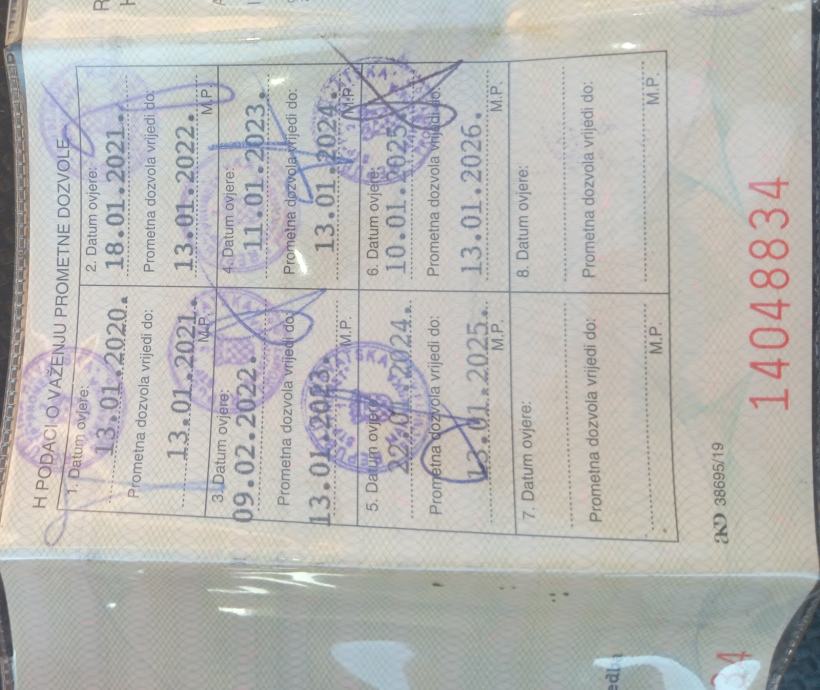 H PODACI O VAŽENJU PROMETNE DOZVOLE
1. Datum ovjere:
13.01.2020.
Prometna dozvola vrijedi do:
13.01.2021.
M.P.
2. Datum ovjere:
18.01.2021.
Prometna dozvola vrijedi do:
13.01.2022.
M.P.
3. Datum ovjere:
09.02.2022.
Prometna dozvola vrijedi do:
13.01.2023.
M.P.
4. Datum ovjere:
11.01.2023.
Prometna dozvola vrijedi do:
13.01.2024.
M.P.
5. Datum ovjere:
Prometna dozvola vrijedi do:
13.01.2025.
M.P.
6. Datum ovjere:
10.01.2025.
Prometna dozvola vrijedi do:
13.01.2026.
M.P.
7. Datum ovjere:
Prometna dozvola vrijedi do:
M.P.
8. Datum ovjere:
Prometna dozvola vrijedi do:
M.P.
38695/19
14048834